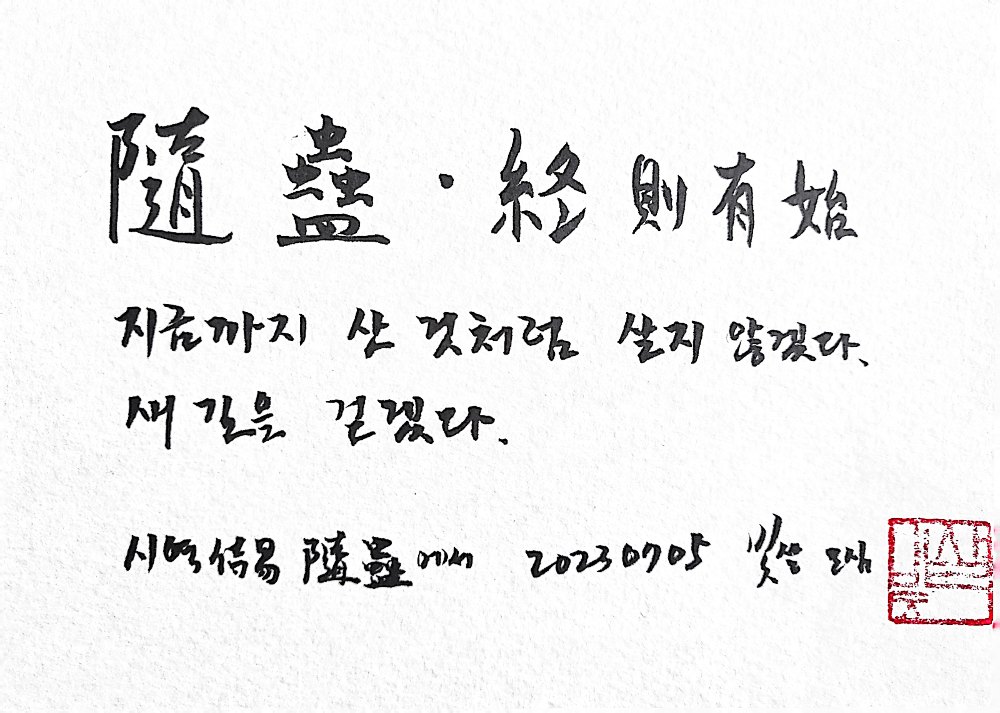 隨 蠱 · 終 則 有 始
지금까지 산 것처럼 살지 않겠다.
새 길을 걷겠다.
시역 隨蠱에서 20230705 빛살